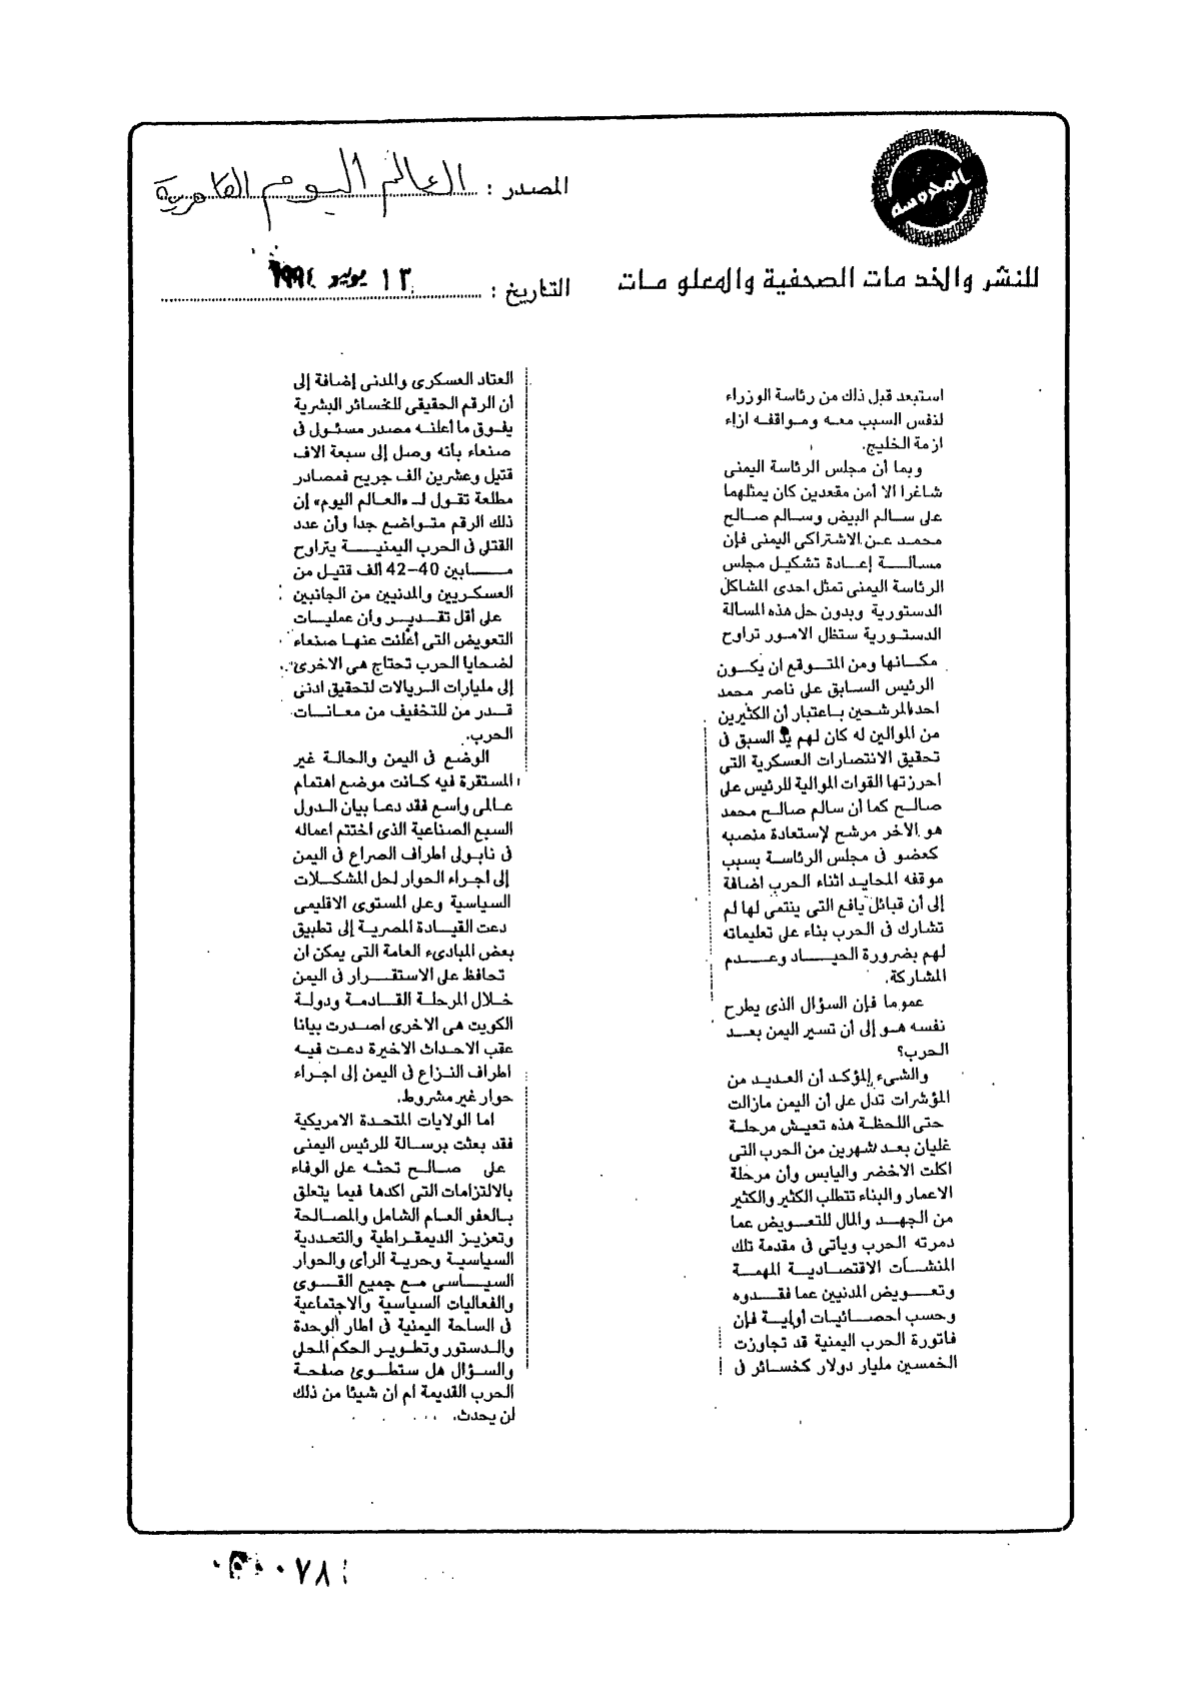 المحروسه
المصدر : العالم اليوم القاهرية
للنشر والخدمات الصحفية والمعلومات
التاريخ : ١٣ يوليو ١٩٩٤
استبعد قبل ذلك من رئاسة الوزراء
لنفس السبب معه ومواقفه ازاء
ازمة الخليج.
وبما أن مجلس الرئاسة اليمنى
شاغرا الا أمن مقعدين كان يمثلهما
على سالم البيض وسالم صالح
محمد عن الاشتراكى اليمنى فإن
مسألة إعادة تشكيل مجلس
الرئاسة اليمنى تمثل احدى المشاكل
الدستورية وبدون حل هذه المسالة
الدستورية ستظل الامور تراوح
مكانها ومن المتوقع ان يكون
الرئيس السابق على ناصر محمد
احد المرشحين باعتبار أن الكثيرين
من الموالين له كان لهم يد السبق فى
تحقيق الانتصارات العسكرية التى
احرزتها القوات الموالية للرئيس على
صالح كما أن سالم صالح محمد
هو الآخر مرشح لإستعادة منصبه
كعضو فى مجلس الرئاسة بسبب
موقفه المحايد اثناء الحرب اضافة
إلى أن قبائل يافع التى ينتمى لها لم
تشارك فى الحرب بناء على تعليماته
لهم بضرورة الحياد وعدم
المشاركة.
عموما فإن السؤال الذى يطرح
نفسه هو إلى أن تسير اليمن بعد
الحرب؟
والشىء المؤكد أن العديد من
المؤشرات تدل على أن اليمن مازالت
حتى اللحظة هذه تعيش مرحلة
غليان بعد شهرين من الحرب التى
اكلت الاخضر واليابس وأن مرحلة
الاعمار والبناء تتطلب الكثير والكثير
من الجهد والمال للتعويض عما
دمرته الحرب ويأتى فى مقدمة تلك
المنشآت الاقتصادية المهمة
وتعويض المدنيين عما فقدوه
وحسب احصائيات أولية فإن
فاتورة الحرب اليمنية قد تجاوزت
الخمسين مليار دولار كخسائر فى
العتاد العسكرى والمدنى إضافة إلى
أن الرقم الحقيقى للخسائر البشرية
يفوق ما أعلنه مصدر مسئول فى
صنعاء بأنه وصل إلى سبعة الاف
قتيل وعشرين الف جريح فمصادر
مطلعة تقول لـ «العالم اليوم» إن
ذلك الرقم متواضع جدا وأن عدد
القتلى فى الحرب اليمنية يتراوح
مابين 40-42 ألف قتيل من
العسكريين والمدنيين من الجانبين
على أقل تقدير وان عمليات
التعويض التى أعلنت عنها صنعاء
لضحايا الحرب تحتاج هى الاخرى
إلى مليارات الريالات لتحقيق ادنى
قدر من للتخفيف من معانات
الحرب.
الوضع فى اليمن والحالة غير
المستقرة فيه كانت موضع اهتمام
عالمى واسع فقد دعا بيان الدول
السبع الصناعية الذى اختتم اعماله
فى نابولى اطراف الصراع فى اليمن
إلى اجراء الحوار لحل المشكلات
السياسية وعلى المستوى الاقليمى
دعت القيادة المصرية إلى تطبيق
بعض المبادىء العامة التى يمكن ان
تحافظ على الاستقرار فى اليمن
خلال المرحلة القادمة ودولة
الكويت هى الاخرى اصدرت بيانا
عقب الاحداث الاخيرة دعت فيه
اطراف النزاع فى اليمن إلى اجراء
حوار غير مشروط.
اما الولايات المتحدة الامريكية
فقد بعثت برسالة للرئيس اليمنى
على صالح تحثه على الوفاء
بالالتزامات التى اكدها فيما يتعلق
بالعفو العام الشامل والمصالحة
وتعزيز الديمقراطية والتعددية
السياسية وحرية الرأى والحوار
السياسى مع جميع القوى
والفعاليات السياسية والاجتماعية
فى الساحة اليمنية فى اطار الوحدة
والدستور وتطوير الحكم المحلى
والسؤال هل ستطوى صفحة
الحرب القديمة ام ان شيئا من ذلك
لن يحدث.